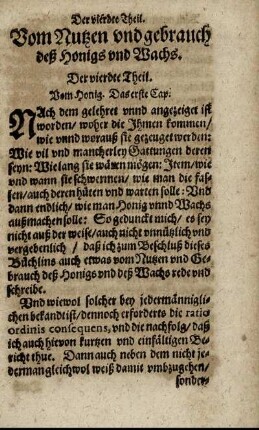 Der vierdte Theil.
Vom Nutzen vnd gebrauch
deß Honigs vnd Wachs.
Der vierdte Theil.
Vom Honig. Das erste Cap.
NAch dem gelehret vnnd angezeiget ist
worden / woher die Ihmen kommen /
wie vnnd worauß sie gezeuget werden:
Wie vil vnd mancherley Gattungen deren
seyn: Wie lang sie wären mögen: Item / wie
vnd wann sie schwermen / wie man die fas-
sen / auch deren hüten vnd warten solle: Vnd
dann endlich / wie man Honig vnnd Wachs
außmachen solle: So gedunckt mich / es sey
nicht auß der weise / auch nicht vnnützlich vnd
vergebenlich / daß ich zum Beschluß dieses
Büchlins auch etwas vom Nutzen vnd Ge-
brauch deß Honigs vnd deß Wachs rede vnd
schreibe.
Vnd wiewol solcher bey jedermänniglí-
chen bekandt ist / dennoch erforderts die ratio
ordinis consequens, vnd die nachfolg / daß
ich auch hiervon kurtzen vnd einfältigen Be-
richt thue. Dann auch neben dem nicht je-
derman gleich wol weiß damit vmbzugehen /
sonder-